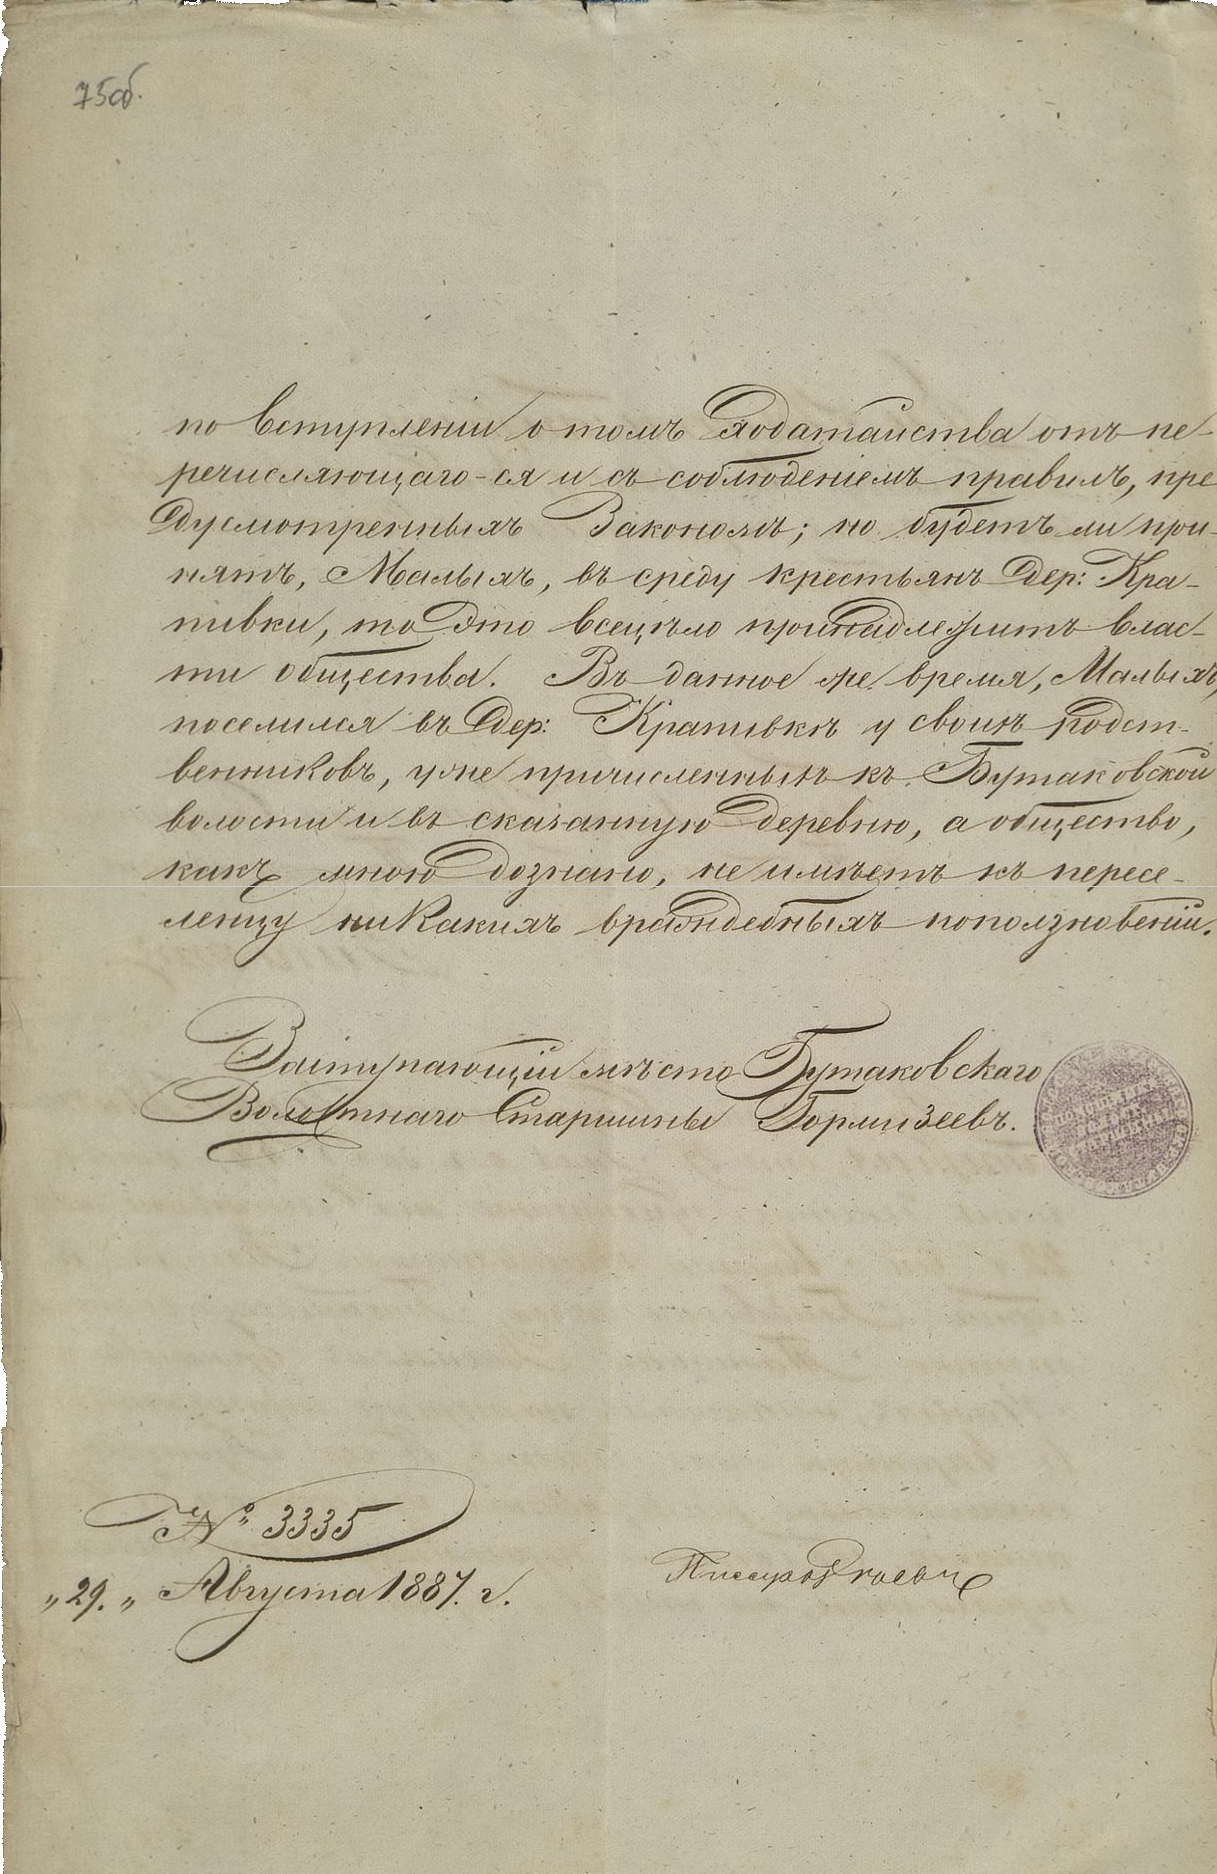 75об.
по вступленіи о томъ Ходатайства отъ пе-
речисляющаго-ся и съ соблюденіемъ правилъ, пре
дусмотренныхъ Закономъ; но будетъ ли при-
нятъ, Малыхъ, въ среду крестьянъ дер: Кра-
пивки, то Это всецѣло принадлежитъ влас-
ти общества. Въ данное же время, Малыхъ,
поселился въ дер: Крапивкѣ у своихъ родст-
венниковъ, уже причисленныхъ къ Бутаковской
волости и въ сказанную деревню, а общество,
какъ мною дознано, не имѣетъ къ пересе-
ленцу никакихъ враждебныхъ поползновеній.
Заступающій мѣсто Бутаковскаго
Волостнаго Старшины Гормизеевъ.
№ 3335
„29.„ Августа 1887. г.
Писарь